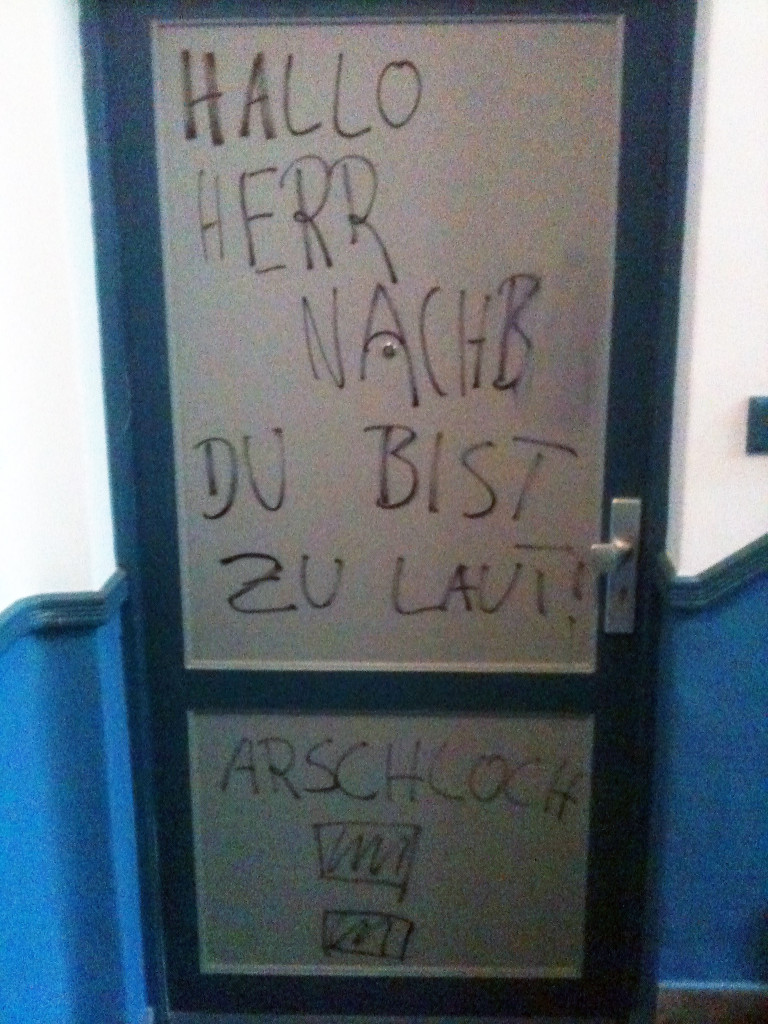 HALLO
HERR
NACHB
DU BIST
ZU LAUT!
ARSCHLOCH